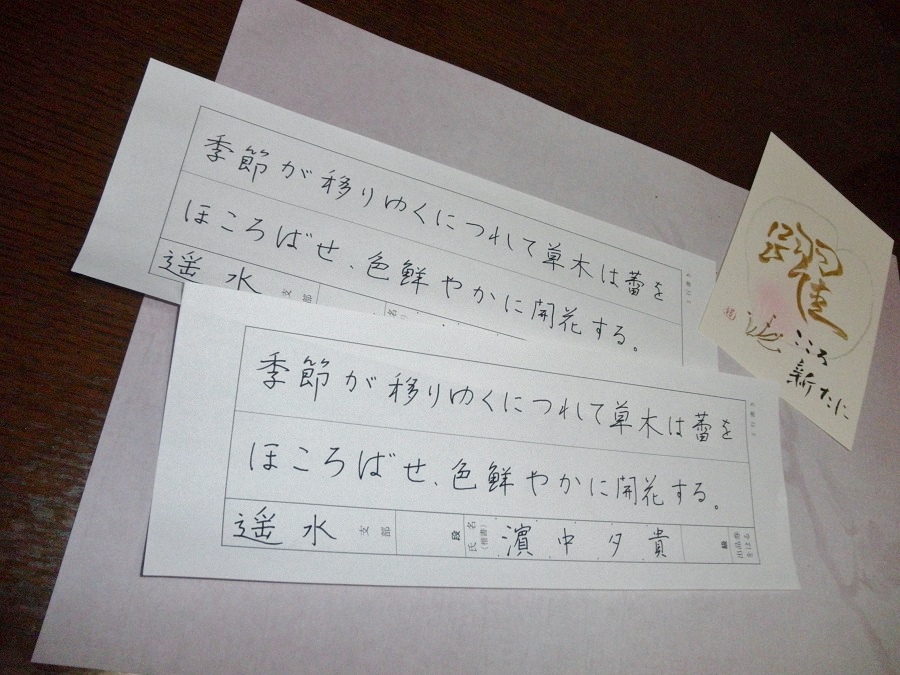 季節が移りゆくにつれして草木は蕾を
ほころばせ、色鮮やかに開花する。
遥水
支部
季節が移りゆくにつれして草木は蕾を
ほころばせ、色鮮やかに開花する。
遥水 支部 段 氏名 (楷書) 濱中夕貴 級 出品券をはる
躍
遥
こころ
新たに